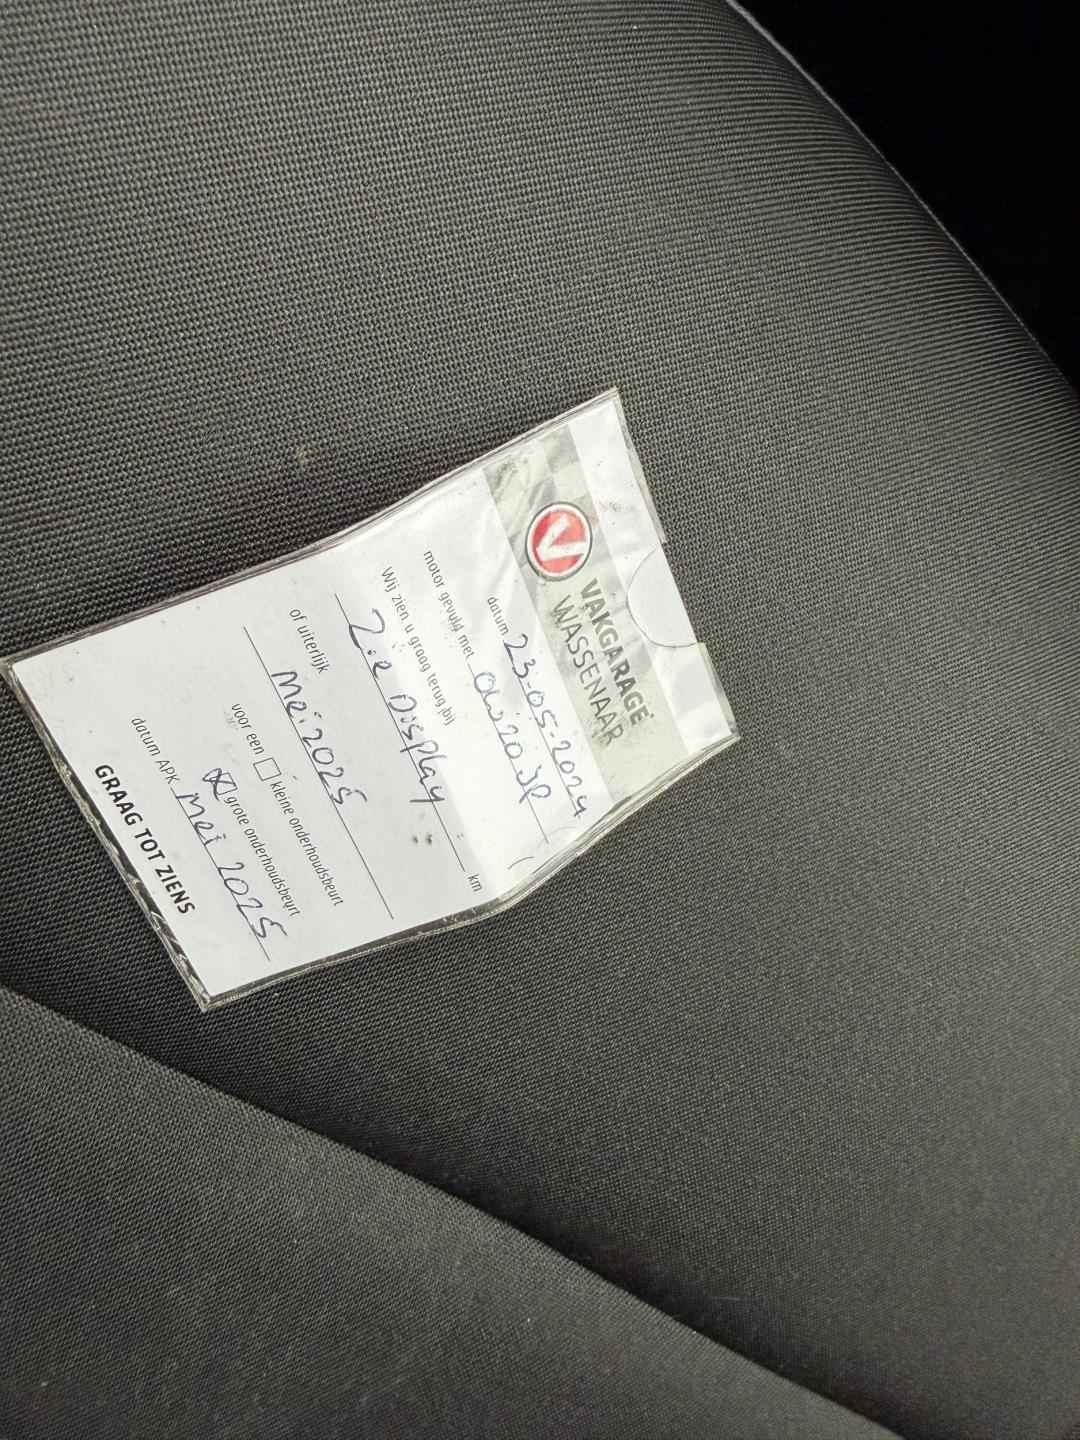 VAKGARAGE
WASSENAAR
datum 23-05-2024
motor gevuld met 0W20 JP
Wij zien u graag terug bij
Zie Display km
of uiterlijk
Mei 2025
voor een kleine onderhoudsbeurt
grote onderhoudsbeurt
datum APK Mei 2025
GRAAG TOT ZIENS